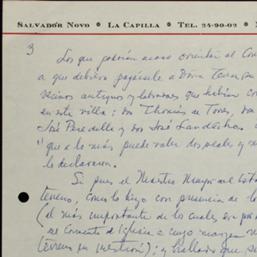 SALVADOR NOVO • LA CAPILLA • TEL. 24-90-02 •
3
Los que podrían acaso orientar al Con
a que debiera pagársele a Doña Teresa
vecinos antiguos y labradores que habían
en esta villa: don Thomás de Torres, don
José Paradella y don José Landeros
"que a lo más puede valer dos reales y me
le declararon.
Si pues el Maestro Mayor
terreno, como lo hizo con presencia de l
(el más importante de los cuales
me Convento de Iglesia a cuyo
terreno en mención); y hallado que